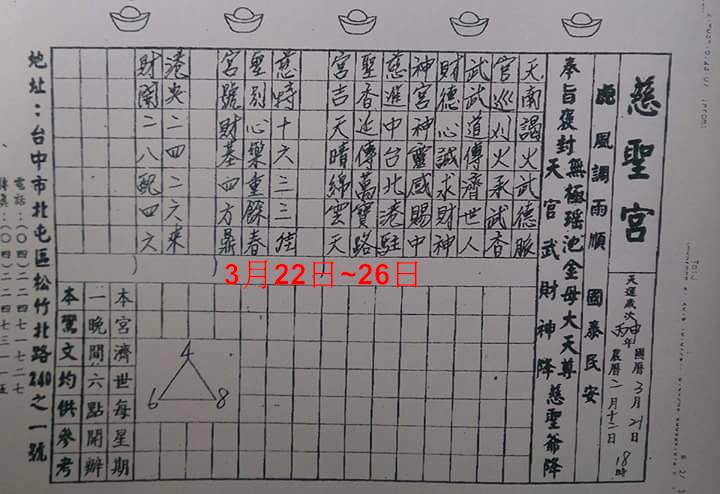 慈聖宮
天運歲次丙申年
國曆3月21日18時
農曆二月十三日
風調雨順 國泰民安
奉旨褒封
無極瑤池金母大天尊
天官武財神降 慈聖爺降
天南謁火武德脈
官巡刈火承武香
武武道傳濟世人
財德心誠求財神
神宮神靈感賜中
慈進中台北港駐
聖香迄傳萬寶路
宮吉天晴綿雲天
慈特十六三三挂
聖別心樂重餘春
宮號財基四方鼎
港央二四二六來
財開二八配四六
3月22日~26日
4
6 8
本宮濟世每星期
一晚間六點開辦
本鸞文均供參考
地址：台中市北屯區松竹北路240之一號
電話：(〇四)二二四七一七二七
傳真：(〇四)二二四七三一一五